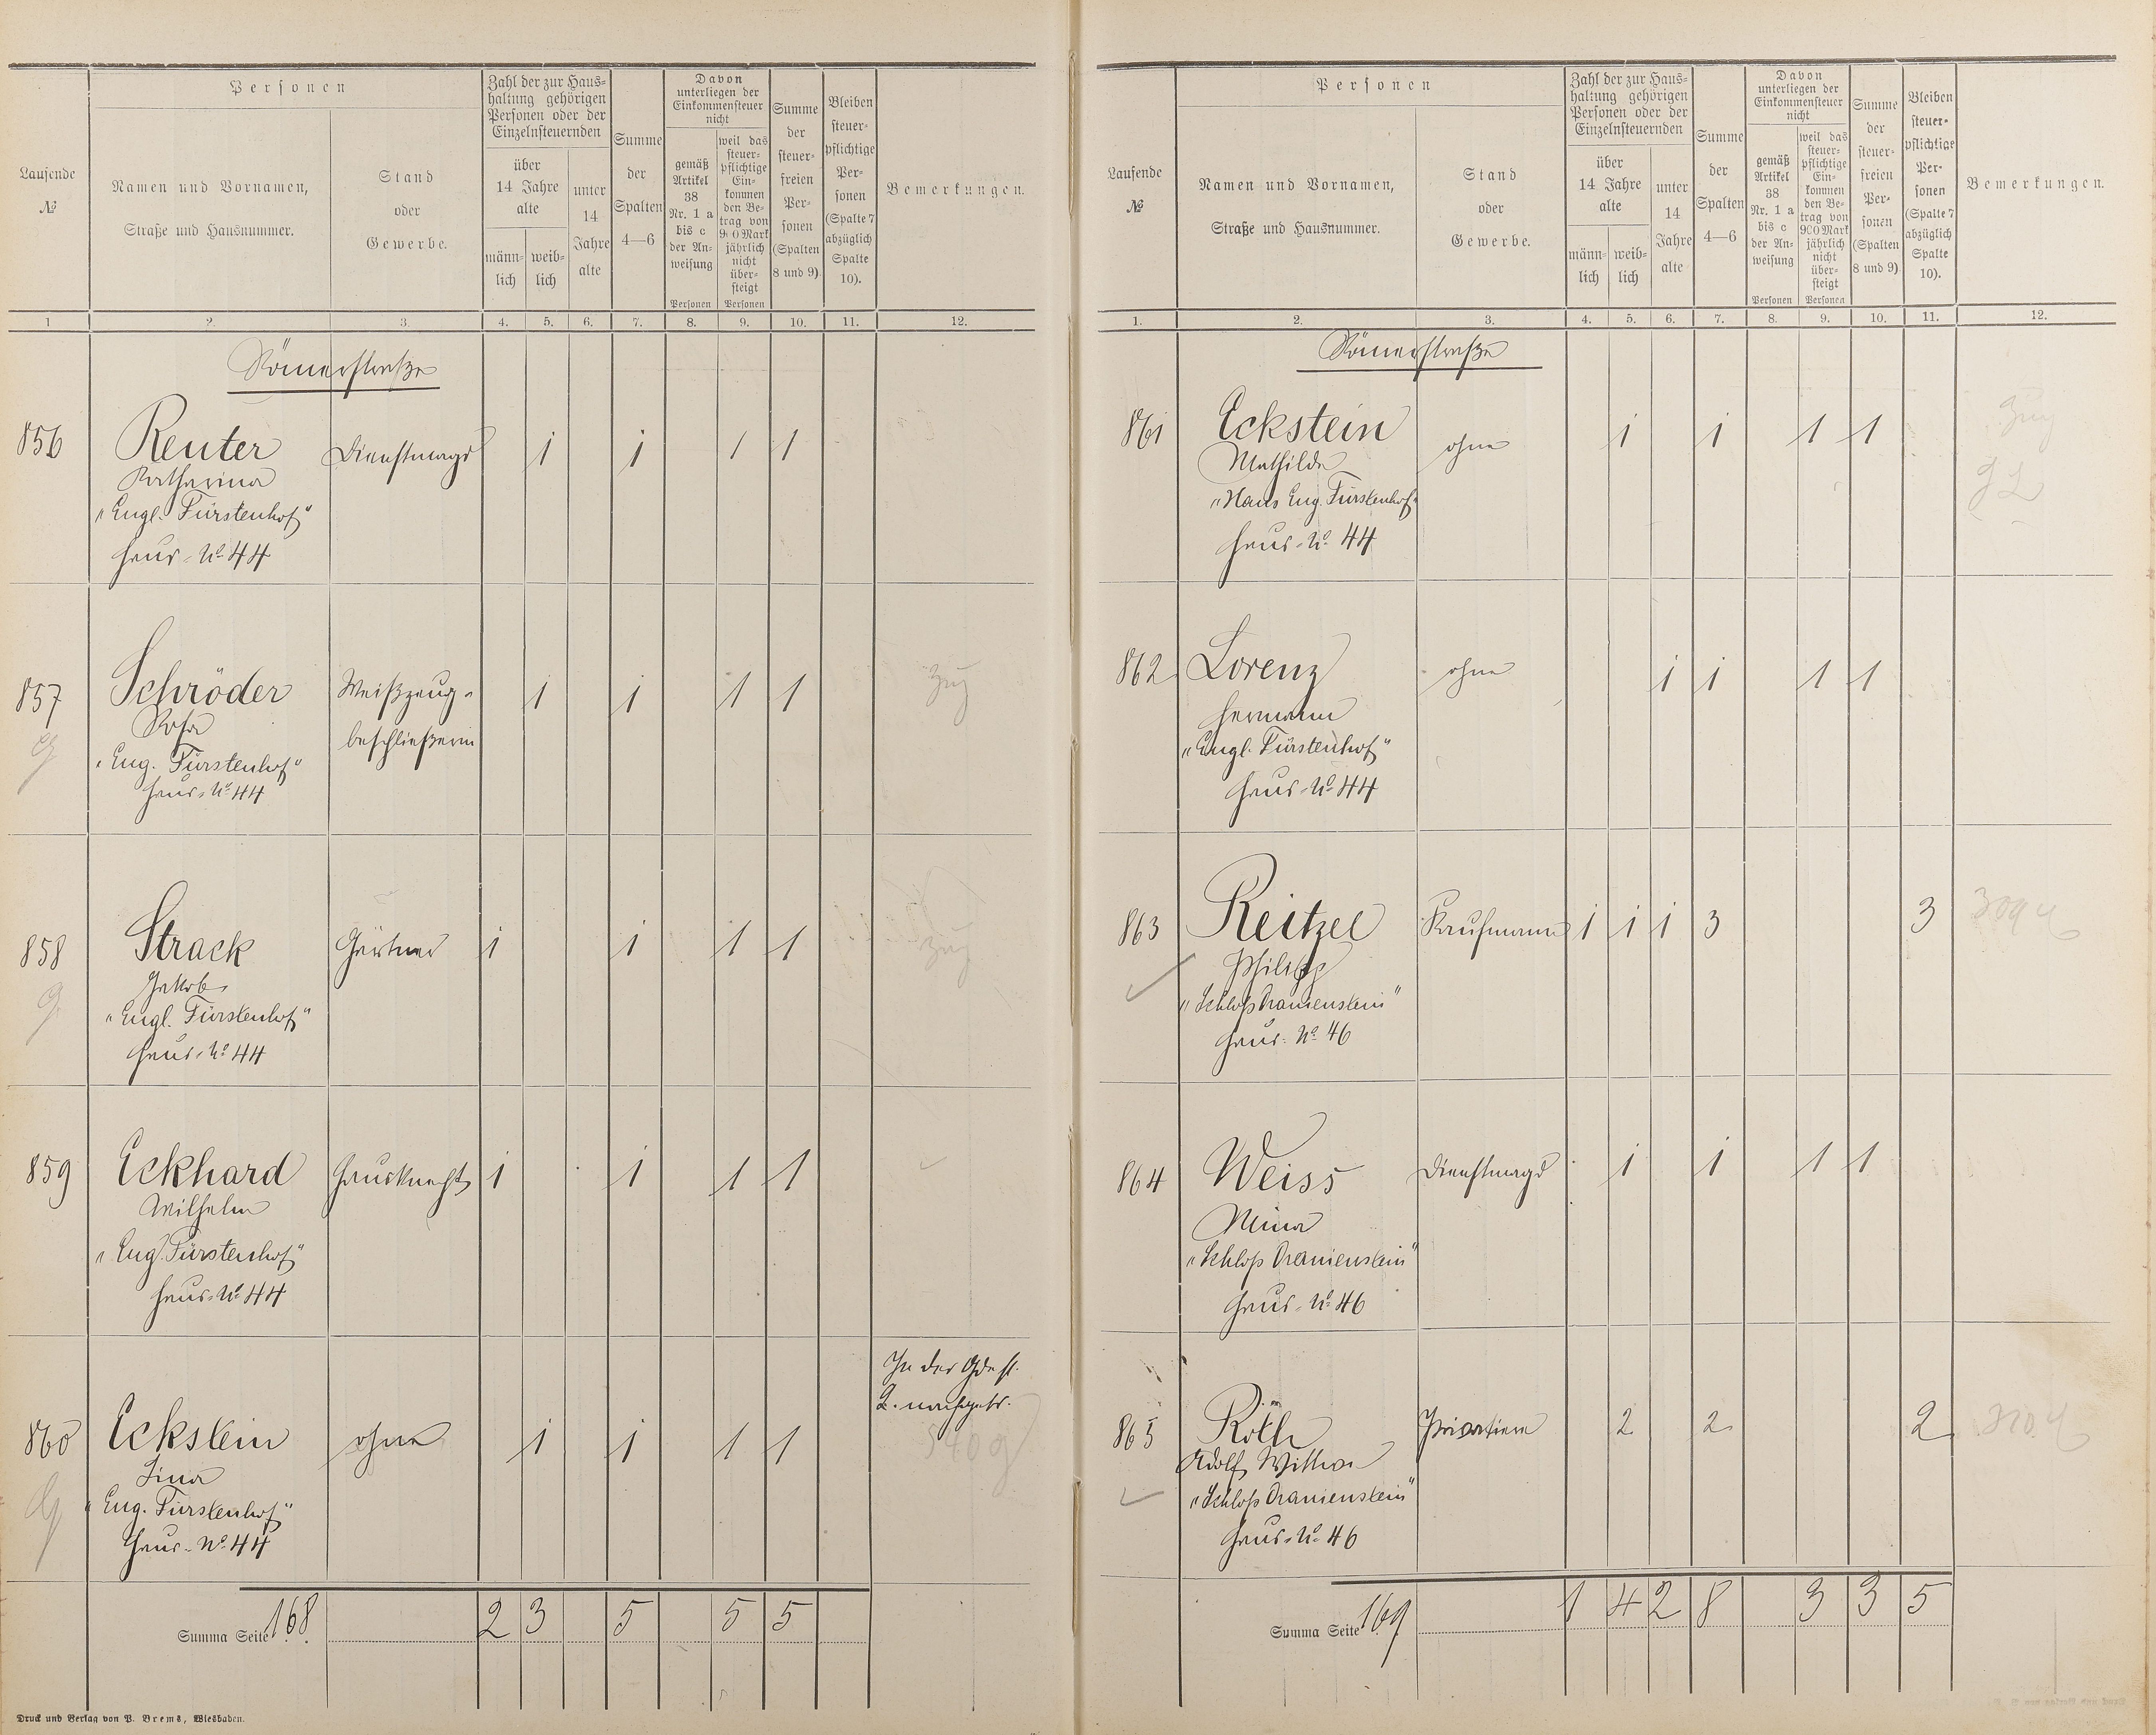 Laufende
№
Personen
Namen und Vornamen,
Straße und Hausnummer.
Stand
oder
Gewerbe.
Zahl der zur Haus-
haltung gehörigen
Personen oder der
Einzelnsteuernden
über
14 Jahre
alte
männ-
lich
weib-
lich
unter
14
Jahre
alte
Summe
der
Spalten
4—6
Davon
unterliegen der
Einkommensteuer
nicht
gemäß
Artikel
38
Nr. 1 a
bis c
der An-
weisung
Personen
weil das
steuer-
pflichtige
Ein-
kommen
den Be-
trag von
900 Mark
jährlich
nicht
über-
steigt
Personen
Summe
der
steuer-
freien
Per-
sonen
(Spalten
8 und 9).
Bleiben
steuer-
pflichtige
Per-
sonen
(Spalte 7
abzüglich
Spalte
10).
Bemerkungen.
1 2. 3. 4. 5. 6. 7. 8. 9. 10. 11. 12.
Römerstraße
856 Reuter Dienstmagd 1 1 1 1
Katharina
"Engl. Fürstenhof"
Haus-No 44
857 Schröder Weißzeug- 1 1 1 1 Zug
Rosa beschließerin
"Eng. Fürstenhof"
Haus-No 44
858 Strack Gärtner 1 1 1 1 Zug
Jakob
"Engl. Fürstenhof"
Haus-No 44
859 Eckhard Hausknecht 1 1 1 1
Wilhelm
"Engl. Fürstenhof"
Haus-No 44
In der
860 Eckstein ohne 1 1 1 1 540 g
Lina
"Eng. Fürstenhof"
Haus-No 44
Summa Seite 168. 2 3 5 5 5
Druck und Verlag von P. Brems, Wiesbaden.
Laufende
№
Personen
Namen und Vornamen,
Straße und Hausnummer.
Stand
oder
Gewerbe.
Zahl der zur Haus-
haltung gehörigen
Personen oder der
Einzelnsteuernden
über
14 Jahre
alte
männ-
lich
weib-
lich
unter
14
Jahre
alte
Summe
der
Spalten
4—6
Davon
unterliegen der
Einkommensteuer
nicht
gemäß
Artikel
38
Nr. 1 a
bis c
der An-
weisung
Personen
weil das
steuer-
pflichtige
Ein-
kommen
den Be-
trag von
900 Mark
jährlich
nicht
über-
steigt
Personen
Summe
der
steuer-
freien
Per-
sonen
(Spalten
8 und 9).
Bleiben
steuer-
pflichtige
Per-
sonen
(Spalte 7
abzüglich
Spalte
10).
Bemerkungen.
1. 2. 3. 4. 5. 6. 7. 8. 9. 10. 11. 12.
Römerstraße
861 Eckstein ohne 1 1 1 1 Zug
Mathilde
"Haus Eng. Fürstenhof"
Haus-No 44
862 Lorenz ohne 1 1 1 1
Hermann
"Engl. Fürstenhof"
Haus-No 44
863 Reitzel Kaufmann 1 1 1 3 3
Philipp
"Schloß Oranienstein"
Haus-No 46
864 Weiss Dienstmagd 1 1 1 1
Mina
"Schloß Oranienstein"
Haus-No 46
865 Röth Privatiere 2 2 2
Adolf Wittwe
"Schloß Oranienstein"
Haus-No 46
Summa Seite 169 1 4 2 8 3 3 5